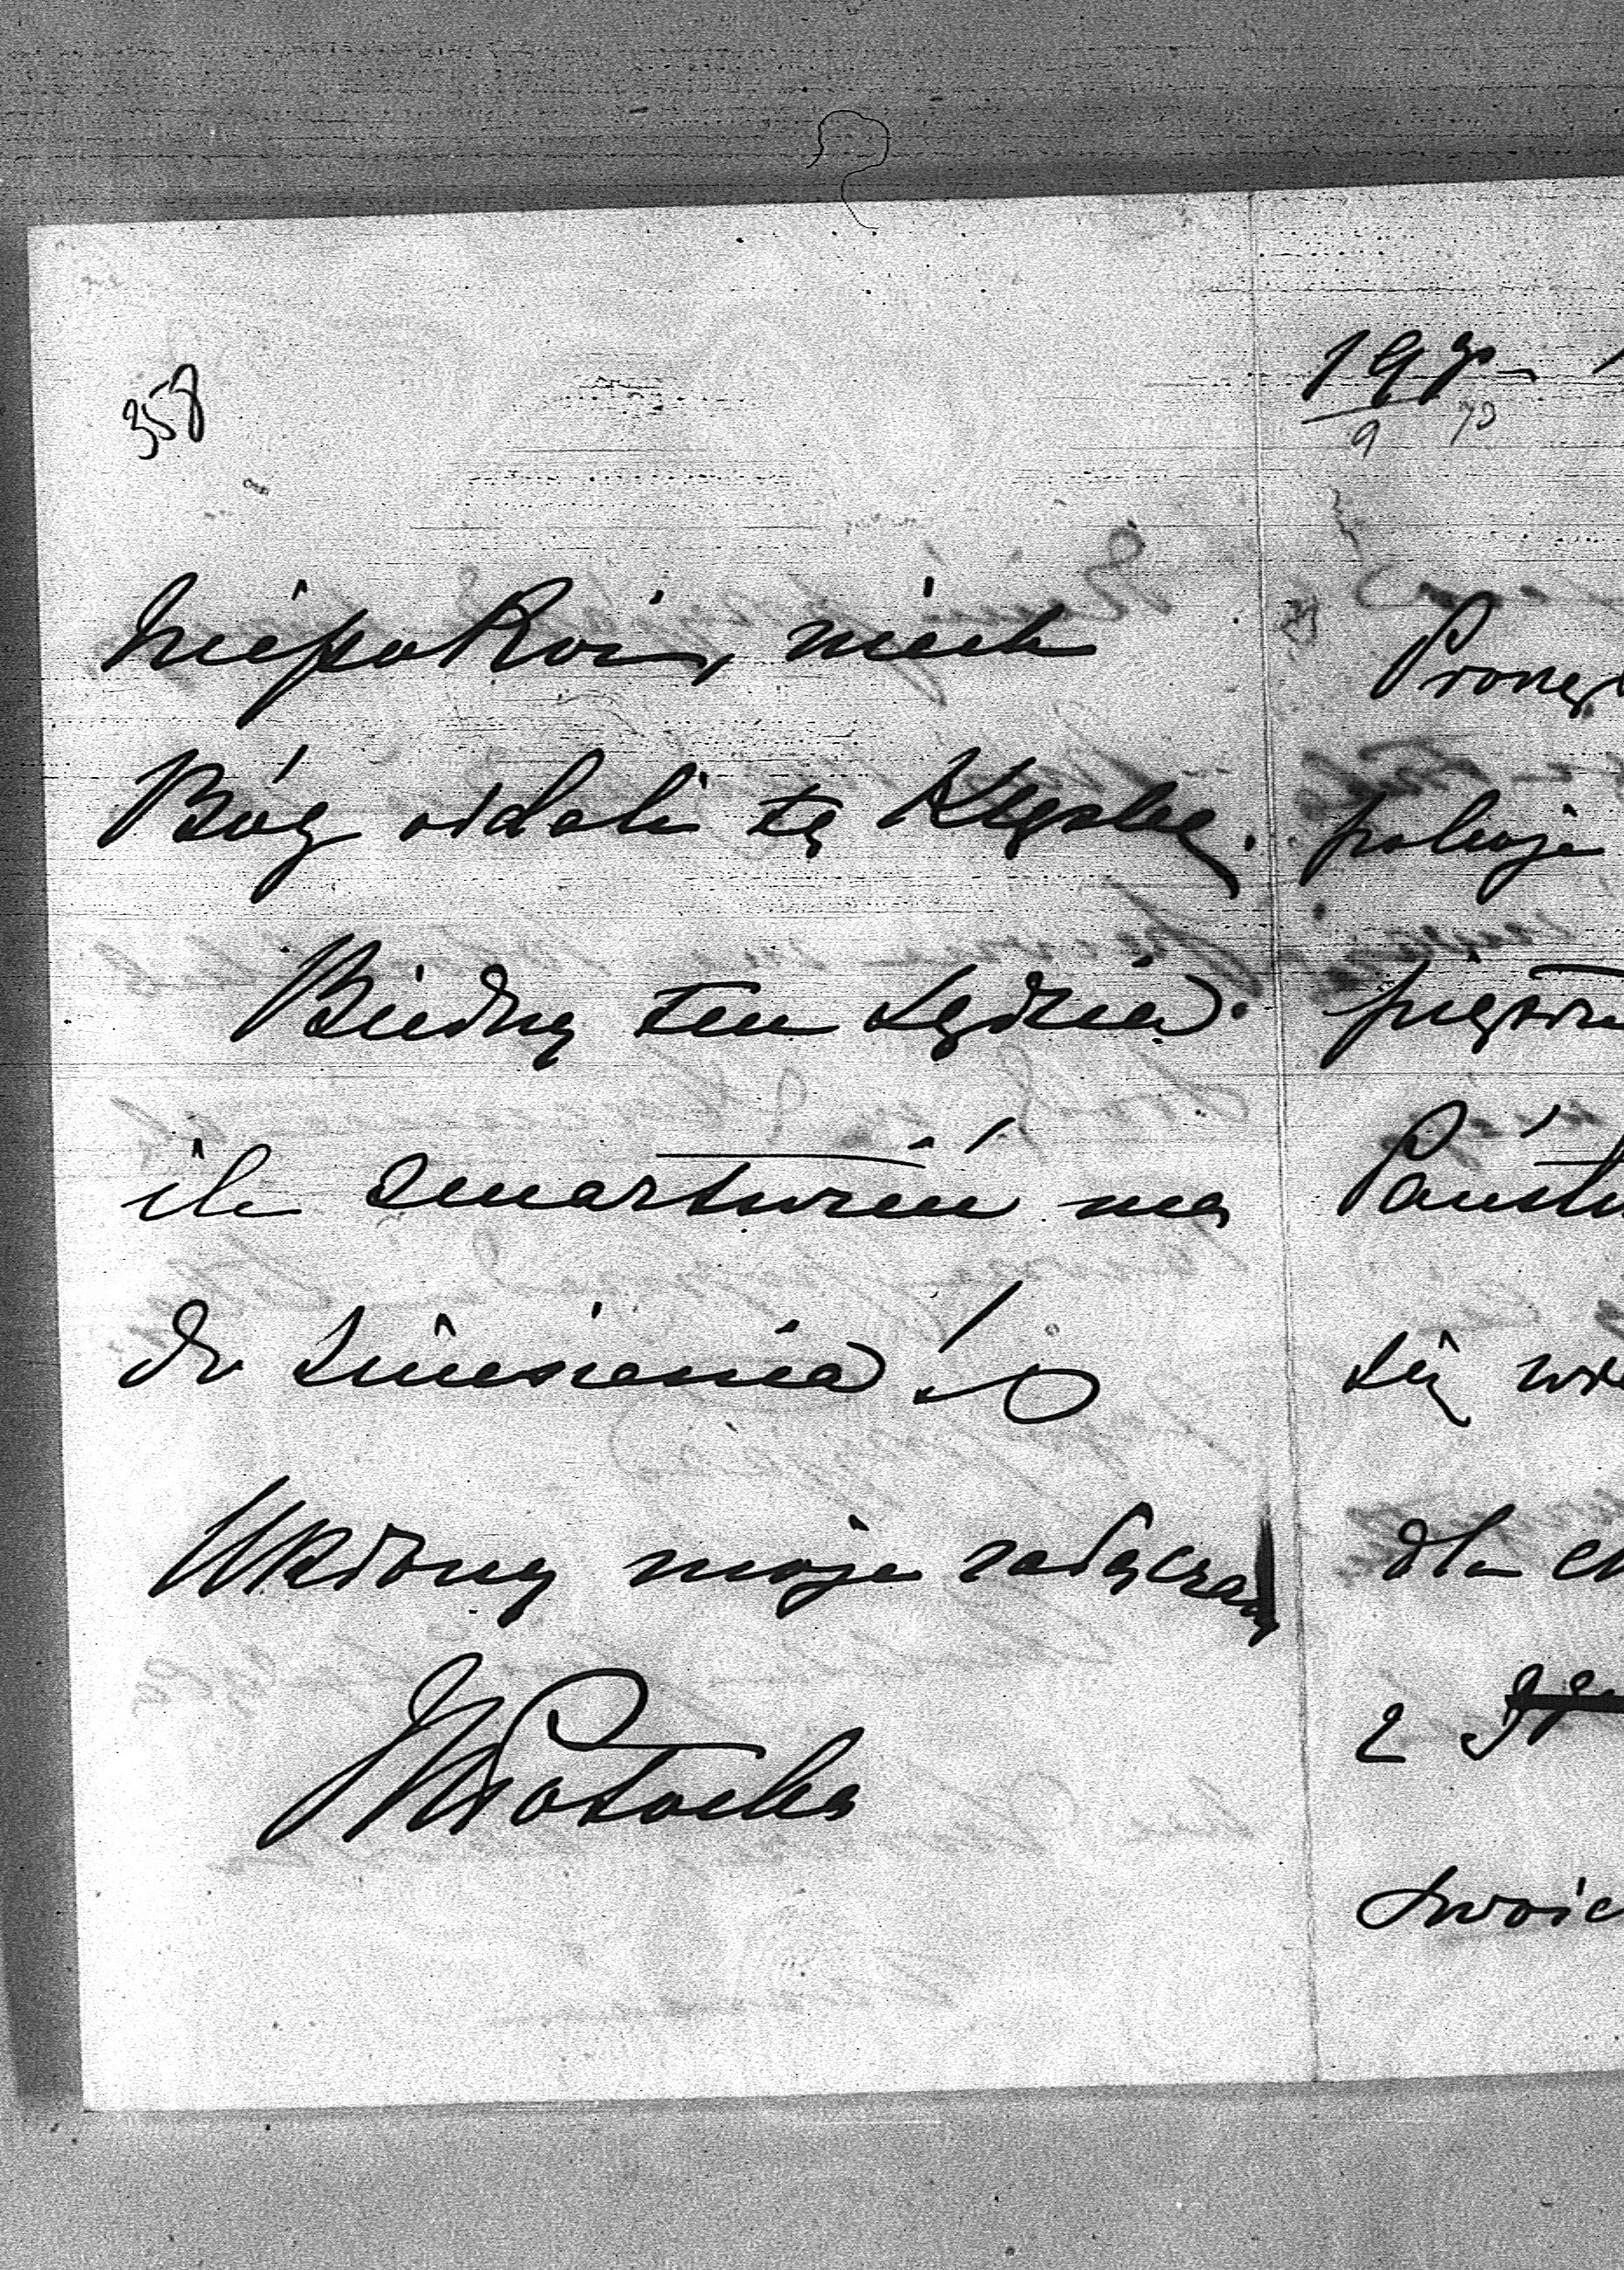 358
niepokoi, niech
Bóg oddali tę klęskę.
Biedny ten sędzia.
ile zmartwień ma
do zniesienia!
Ukłony moje załączam
Potocka
19go
9 73
Proszę
pokoje
Państw
się
dla
2
swoich